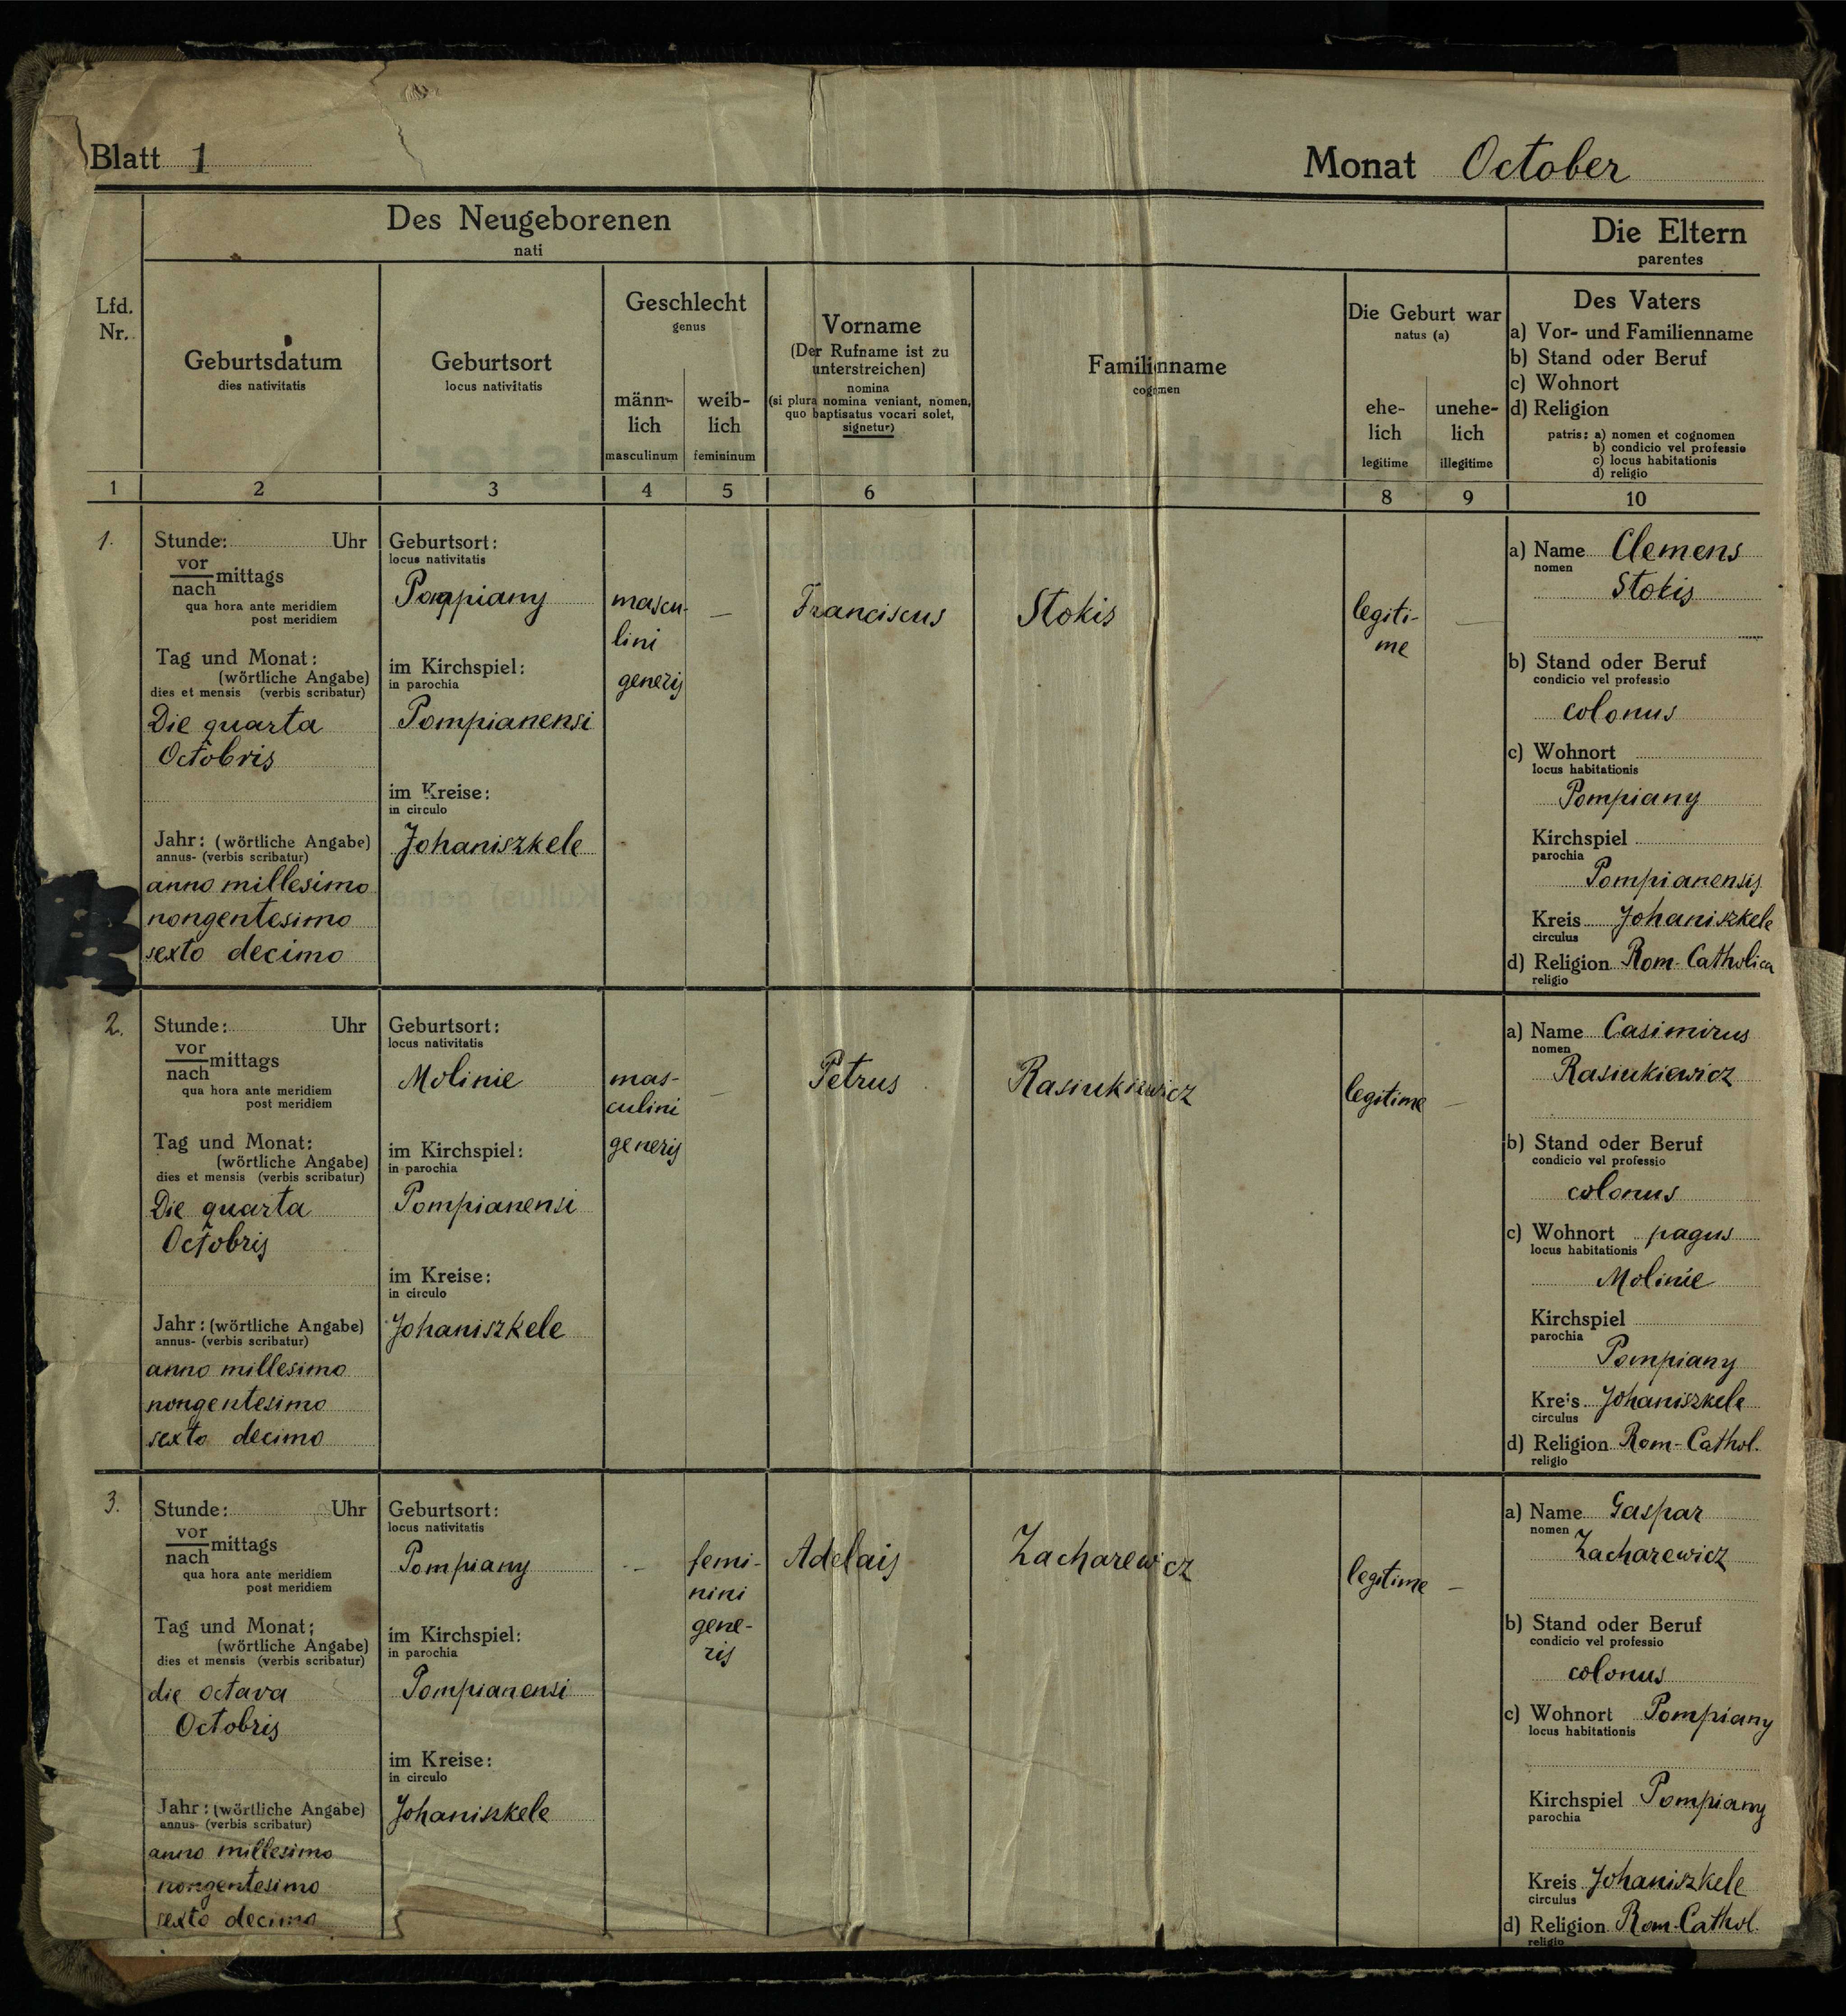 Blatt 1
Monat October
Des Neugeborenen
nati
Die Eltern
parentes
Lfd.
Nr.
Geburtsdatum
dies nativitatis
Geburtsort
locus nativitatis
Geschlecht
genus
männ-
lich
masculinum
weib-
lich
femininum
Vorname
(Der Rufname ist zu
unterstreichen)
nomina
(si plura nomina veniant, nomen,
quo baptisatus vocari solet,
signetur)
Familienname
cognomen
Die Geburt war
natus (a)
ehe-
lich
legitime
unehe-
lich
illegitime
Des Vaters
a) Vor- und Familienname
b) Stand oder Beruf
c) Wohnort
d) Religion
patris: a) nomen et cognomen
b) condicio vel professio
c) locus habitationis
d) religio
1 2 3 4 5 6 8 9 10
1.
Stunde: Uhr
vor
nach mittags
qua hora ante meridiem
post meridiem
Tag und Monat:
(wörtliche Angabe)
dies et mensis (verbis scribatur)
Die quarta
Octobris
Jahr: (wörtliche Angabe)
annus- (verbis scribatur)
anno millesimo
nongentesimo
sexto decimo
Geburtsort:
locus nativitatis
Pompiany
im Kirchspiel:
in parochia
Pompianensi
im Kreise:
in circulo
Johaniszkele
mascu-
lini
generis
—
Franciscus
Stokis
legiti-
me
—
a) Name Clemens
nomen
Stokis
b) Stand oder Beruf
condicio vel professio
colonus
c) Wohnort
locus habitationis
Pompiany
Kirchspiel
parochia
Pompianensis
Kreis Johaniszkele
circulus
d) Religion Rom-Catholica
religio
2.
Stunde: Uhr
vor
nach mittags
qua hora ante meridiem
post meridiem
Tag und Monat:
(wörtliche Angabe)
dies et mensis (verbis scribatur)
Die quarta
Octobris
Jahr: (wörtliche Angabe)
annus- (verbis scribatur)
anno millesimo
nongentesimo
sexto decimo
Geburtsort:
locus nativitatis
Molinie
im Kirchspiel:
in parochia
Pompianensi
im Kreise:
in circulo
Johaniszkele
mas-
culini
generis
—
Petrus
Rasiukiewicz
legitime
—
a) Name Casimirus
nomen
Rasiukiewicz
b) Stand oder Beruf
condicio vel professio
colonus
c) Wohnort pagus
locus habitationis
Molinie
Kirchspiel
parochia
Pompiany
Kreis Johaniszkele
circulus
d) Religion Rom-Cathol.
religio
3.
Stunde: Uhr
vor
nach mittags
qua hora ante meridiem
post meridiem
Tag und Monat:
(wörtliche Angabe)
dies et mensis (verbis scribatur)
die octava
Octobris
Jahr: (wörtliche Angabe)
annus- (verbis scribatur)
anno millesimo
nongentesimo
sexto decimo
Geburtsort:
locus nativitatis
Pompiany
im Kirchspiel:
in parochia
Pompianensi
im Kreise:
in circulo
Johaniszkele
—
femi-
nini
gene-
ris
Adelais
Zacharewicz
legitime
—
a) Name Gaspar
nomen
Zacharewicz
b) Stand oder Beruf
condicio vel professio
colonus
c) Wohnort Pompiany
locus habitationis
Kirchspiel Pompiany
parochia
Kreis Johaniszkele
circulus
d) Religion Rom-Cathol.
religio